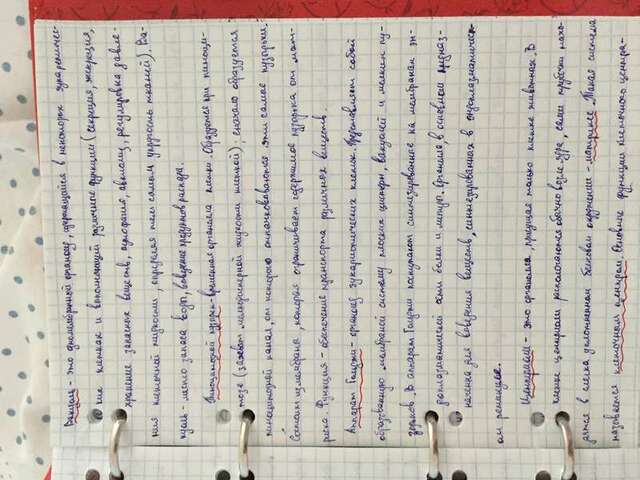 Вакуоль - это одномембранный органоид, содержащийся в некоторых эукариотичес-
ких клетках и выполняющий различные функции (секреция, экскреция,
хранение запасных веществ, аутофагия, автолиз, регулировка давле-
ния клеточной жидкости, определяя тем самым упругость тканей). Ва-
куоль - место запаса воды, выведение продуктов распада.
Пиноцитозный пузырек - временная органелла клетки. Образуется при пиноци-
тозе (захват молекулярной жидкости клеткой): сначала образуется
пиноцитозной канал, от которого отпочковываются эти самые пузырьки.
Состоит из мембраны, которая ограничивает содержимое пузырька от мат-
рикса. Функция - обеспечение транспорта различных веществ.
Аппарат Гольджи - органоид эукариотических клеток. Представляет собой
образованную мембраной систему плоских цистерн, вакуолей и мелких пу-
зырьков. В аппарат Гольджи поступают синтезированные на мембранах эн-
доплазматической сети белки и липиды. Органелла, в основном предназ-
наченна для выведения веществ, синтезированных в эндоплазматичес-
ом ретикулуме.
Центриоли - это органелла, присущая только клетке животных. В
клетке центриоли располагаются обычно возле ядра, сами трубочки нахо-
дятся в слегка уплотненном белковом окружении - матриксе. Такая система
называется клеточным центром. Основные функции клеточного центра-